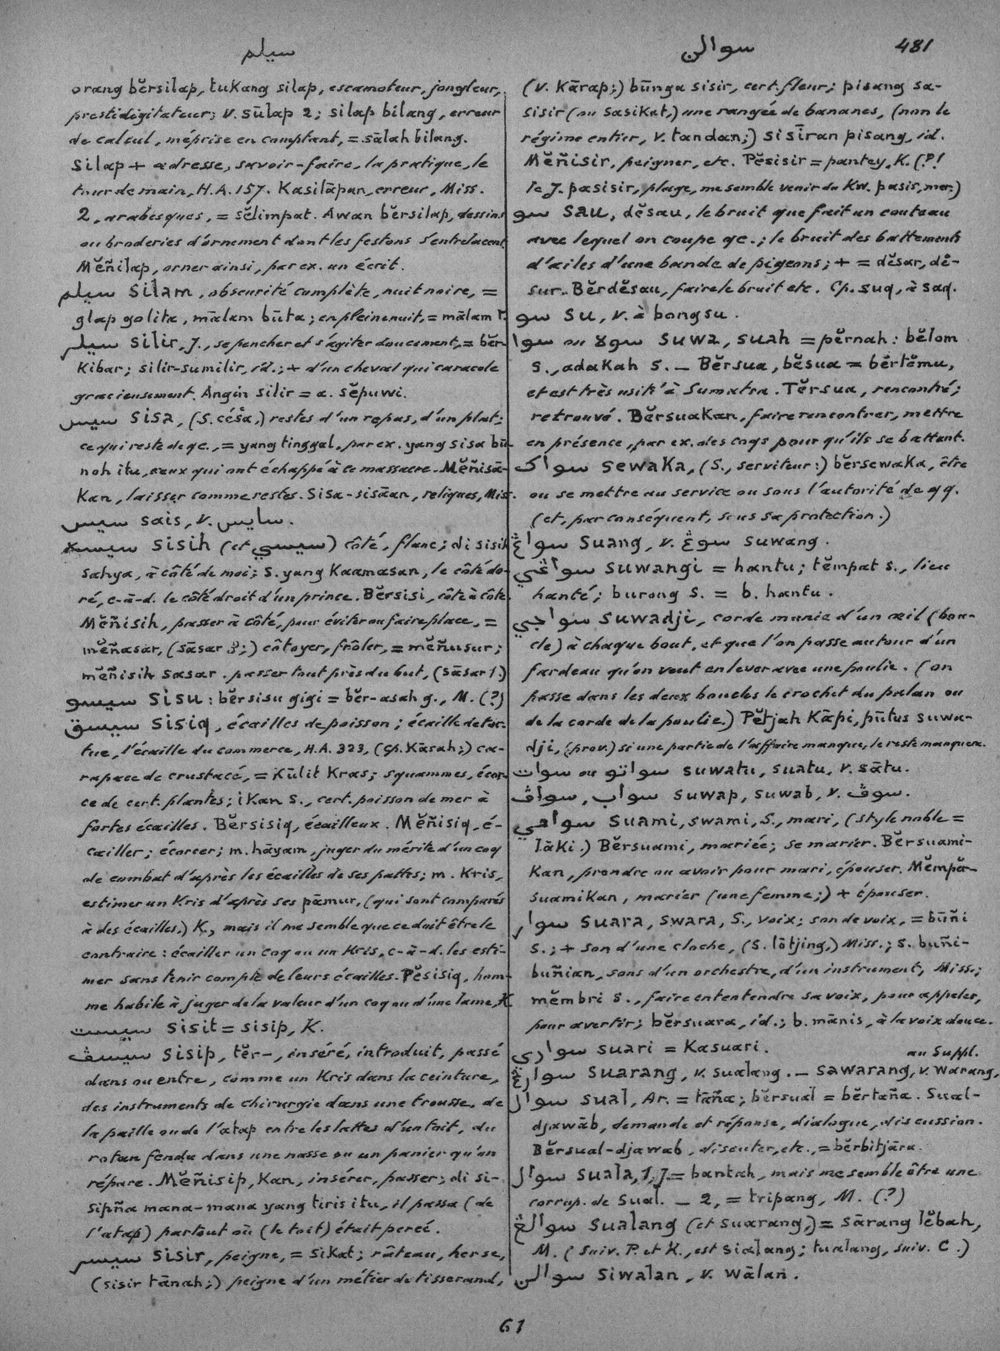 سيلم
سوالن
481
orang bĕrsilap, tukang silap, escamoteur, jongleur,
prestidigitateur; v. sūlap 2; silap bilang, erreur
de calcul, méprise en comptant, = sālah bilang.
Silap + adresse, savoir-faire, la pratique, le
tour de main, H.A. 157. Kasilāpan, erreur, Miss.
2, arabesques, = sĕlimpat. Awan bĕrsilap, dessins
ou broderies d'ornement dont les festons s'entrelacent
Mĕñilap, orner ainsi, par ex. un écrit.
سيلم silam, obscurité complète, nuit noire, =
glap golita, mālam būta; en pleine nuit, = mālam t.
سيلر silir, J., se pencher et s'agiter doucement, = bĕr-
kibar; silir-sumilir, id.; + d'un cheval qui caracole
gracieusement. Angin silir = a. sĕpuwi.
سيس sisa, (S. cēśa,) restes d'un repas, d'un plat;
ce qui reste de qc., = yang tinggal, par ex. yang sisa bū-
noh itu, ceux qui ont échappé à ce massacre. Mĕñisā-
kan, laisser comme restes. Sisa-sisāan, reliques, Miss.
سيس sais, v. سايس.
سيسه sisih (et سيسي) côté, flanc; di sisih
sahya, à côté de moi; s. yang kaamasan, le côté do-
ré, c-à-d. le côté droit d'un prince. Bĕrsisi, côte à côte.
Mĕñisih, passer à côté, pour éviter ou faire place, =
mĕñasar, (sāsar 2;) côtoyer, frôler, = mĕñusur;
mĕñisih sasar. passer tout près du but, (sāsar 1.)
سيسو sisu: bĕrsisu gigi = bĕr-asah g., M. (?)
سيسق sisiq, écailles de poisson; écaille de tor-
tue, l'écaille du commerce, H.A. 323, (Cp. kārah;) ca-
rapace de crustacé, = kūlit kras; squammes, écor-
ce de cert. plantes; ikan s., cert. poisson de mer à
fortes écailles. Bĕrsisiq, écailleux. Mĕñisiq, é-
cailler; écorcer; m. hāyam, juger du mérite d'un coq
de combat d'après les écailles de ses pattes; m. kris,
estimer un kris d'après ses pāmur, (qui sont comparés
à des écailles.) K., mais il me semble que ce doit être le
contraire: écailler un coq ou un kris, c-à-d. les esti-
mer sans tenir compte de leurs écailles. Pĕsisiq, hom-
me habile à juger de la valeur d'un coq ou d'une lame, K
سيست sisit = sisip, K.
سيسڤ sisip, tĕr-, inséré, introduit, passé
dans ou entre, comme un kris dans la ceinture,
des instruments de chirurgie dans une trousse, de
la paille ou de l'atap entre les lattes d'un toit, du
rotan fendu dans une nasse ou un panier qu'on
répare. Mĕñisip, kan, insérer, passer; di si-
sipña mana-mana yang tiris itu, il passa (de
l'atap) partout où (le toit) était percé.
سيسر sisir, peigne, = sikat; râteau, herse,
(sisir tānah;) peigne d'un métier de tisserand,
(v. kārap;) būnga sisir, cert. fleur; pisang sa-
sisir (ou sasikat,) une rangée de bananes, (non le
régime entier, v. tandan;) sisīran pisang, id.
Mĕñisir, peigner, etc. Pĕsisir = pantey, K. (?!
le J. pasisir, plage, me semble venir du Kw. pasis, mer.)
سو sau, dĕsau, le bruit que fait un couteau
avec lequel on coupe qc.; le bruit des battements
d'ailes d'une bande de pigeons; + = dĕsar, dĕ-
sur. Bĕrdĕsau, faire le bruit etc. Cp. suq, à saq.
سو su, v. à bongsu.
سوا ou سوﻩ suwa, suah = pĕrnah: bĕlom
s., adakah s. — Bĕrsua, bĕsua = bĕrtĕmu,
et est très usité à Sumatra. Tĕrsua, rencontré;
retrouvé. Bĕrsuakan, faire rencontrer, mettre
en présence, par ex. des coqs pour qu'ils se battent.
سواک sewaka, (S., serviteur:) bĕrsewaka, être
ou se mettre au service ou sous l'autorité de qq.
(et, par conséquent, sous sa protection.)
سواڠ suang, v. سوڠ suwang.
سواڠي suwangi = hantu; tĕmpat s., lieu
hanté; burong s. = b. hantu.
سواجي suwadji, corde munie d'un œil (bou-
cle) à chaque bout, et que l'on passe autour d'un
fardeau qu'on veut enlever avec une poulie. (on
passe dans les deux boucles le crochet du palan ou
de la corde de la poulie.) Pĕtjah kāpi, pūtus suwa-
dji, (prov.) si une partie de l'affaire manque, le reste manquera.
سوات ou سواتو suwatu, suatu, v. sātu.
سواب, سواڤ suwap, suwab, v. سوڤ.
سوامي suami, swami, S., mari, (style noble =
lāki.) Bĕrsuami, mariée; se marier. Bĕrsuami-
kan, prendre ou avoir pour mari, épouser. Mĕmpĕr-
suamikan, marier (une femme;) + épouser.
سوار suara, swara, S., voix; son de voix, = būñi
s.; + son d'une cloche, (s. lōtjing,) Miss.; s. buñi-
buñian, sons d'un orchestre, d'un instrument, Miss.;
mĕmbri s., faire entendre sa voix, pour appeler,
pour avertir; bĕrsuara, id.; b. mānis, à la voix douce.
سواري suari = kasuari.
au Suppl.
سوارڠ suarang, v. sualang. — sawarang, v. warang,
سوال sual, Ar. = tāña; bĕrsual = bĕrtaña. Sual-
djawāb, demande et réponse, dialogue, discussion.
Bĕrsual-djawab, discuter, etc., = bĕrbitjāra.
سوال suala, 1, J. = bantah, mais me semble être une
corrup. de sual. — 2, = tripang, M. (?)
سوالڠ sualang (et suarang,) = sārang lĕbah,
M. (suiv. P. et K., est sialang; tualang, suiv. C.)
سوالن siwalan, v. wālan.
61